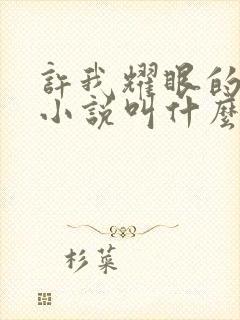 許我耀眼的
小說叫什麼
杉菜